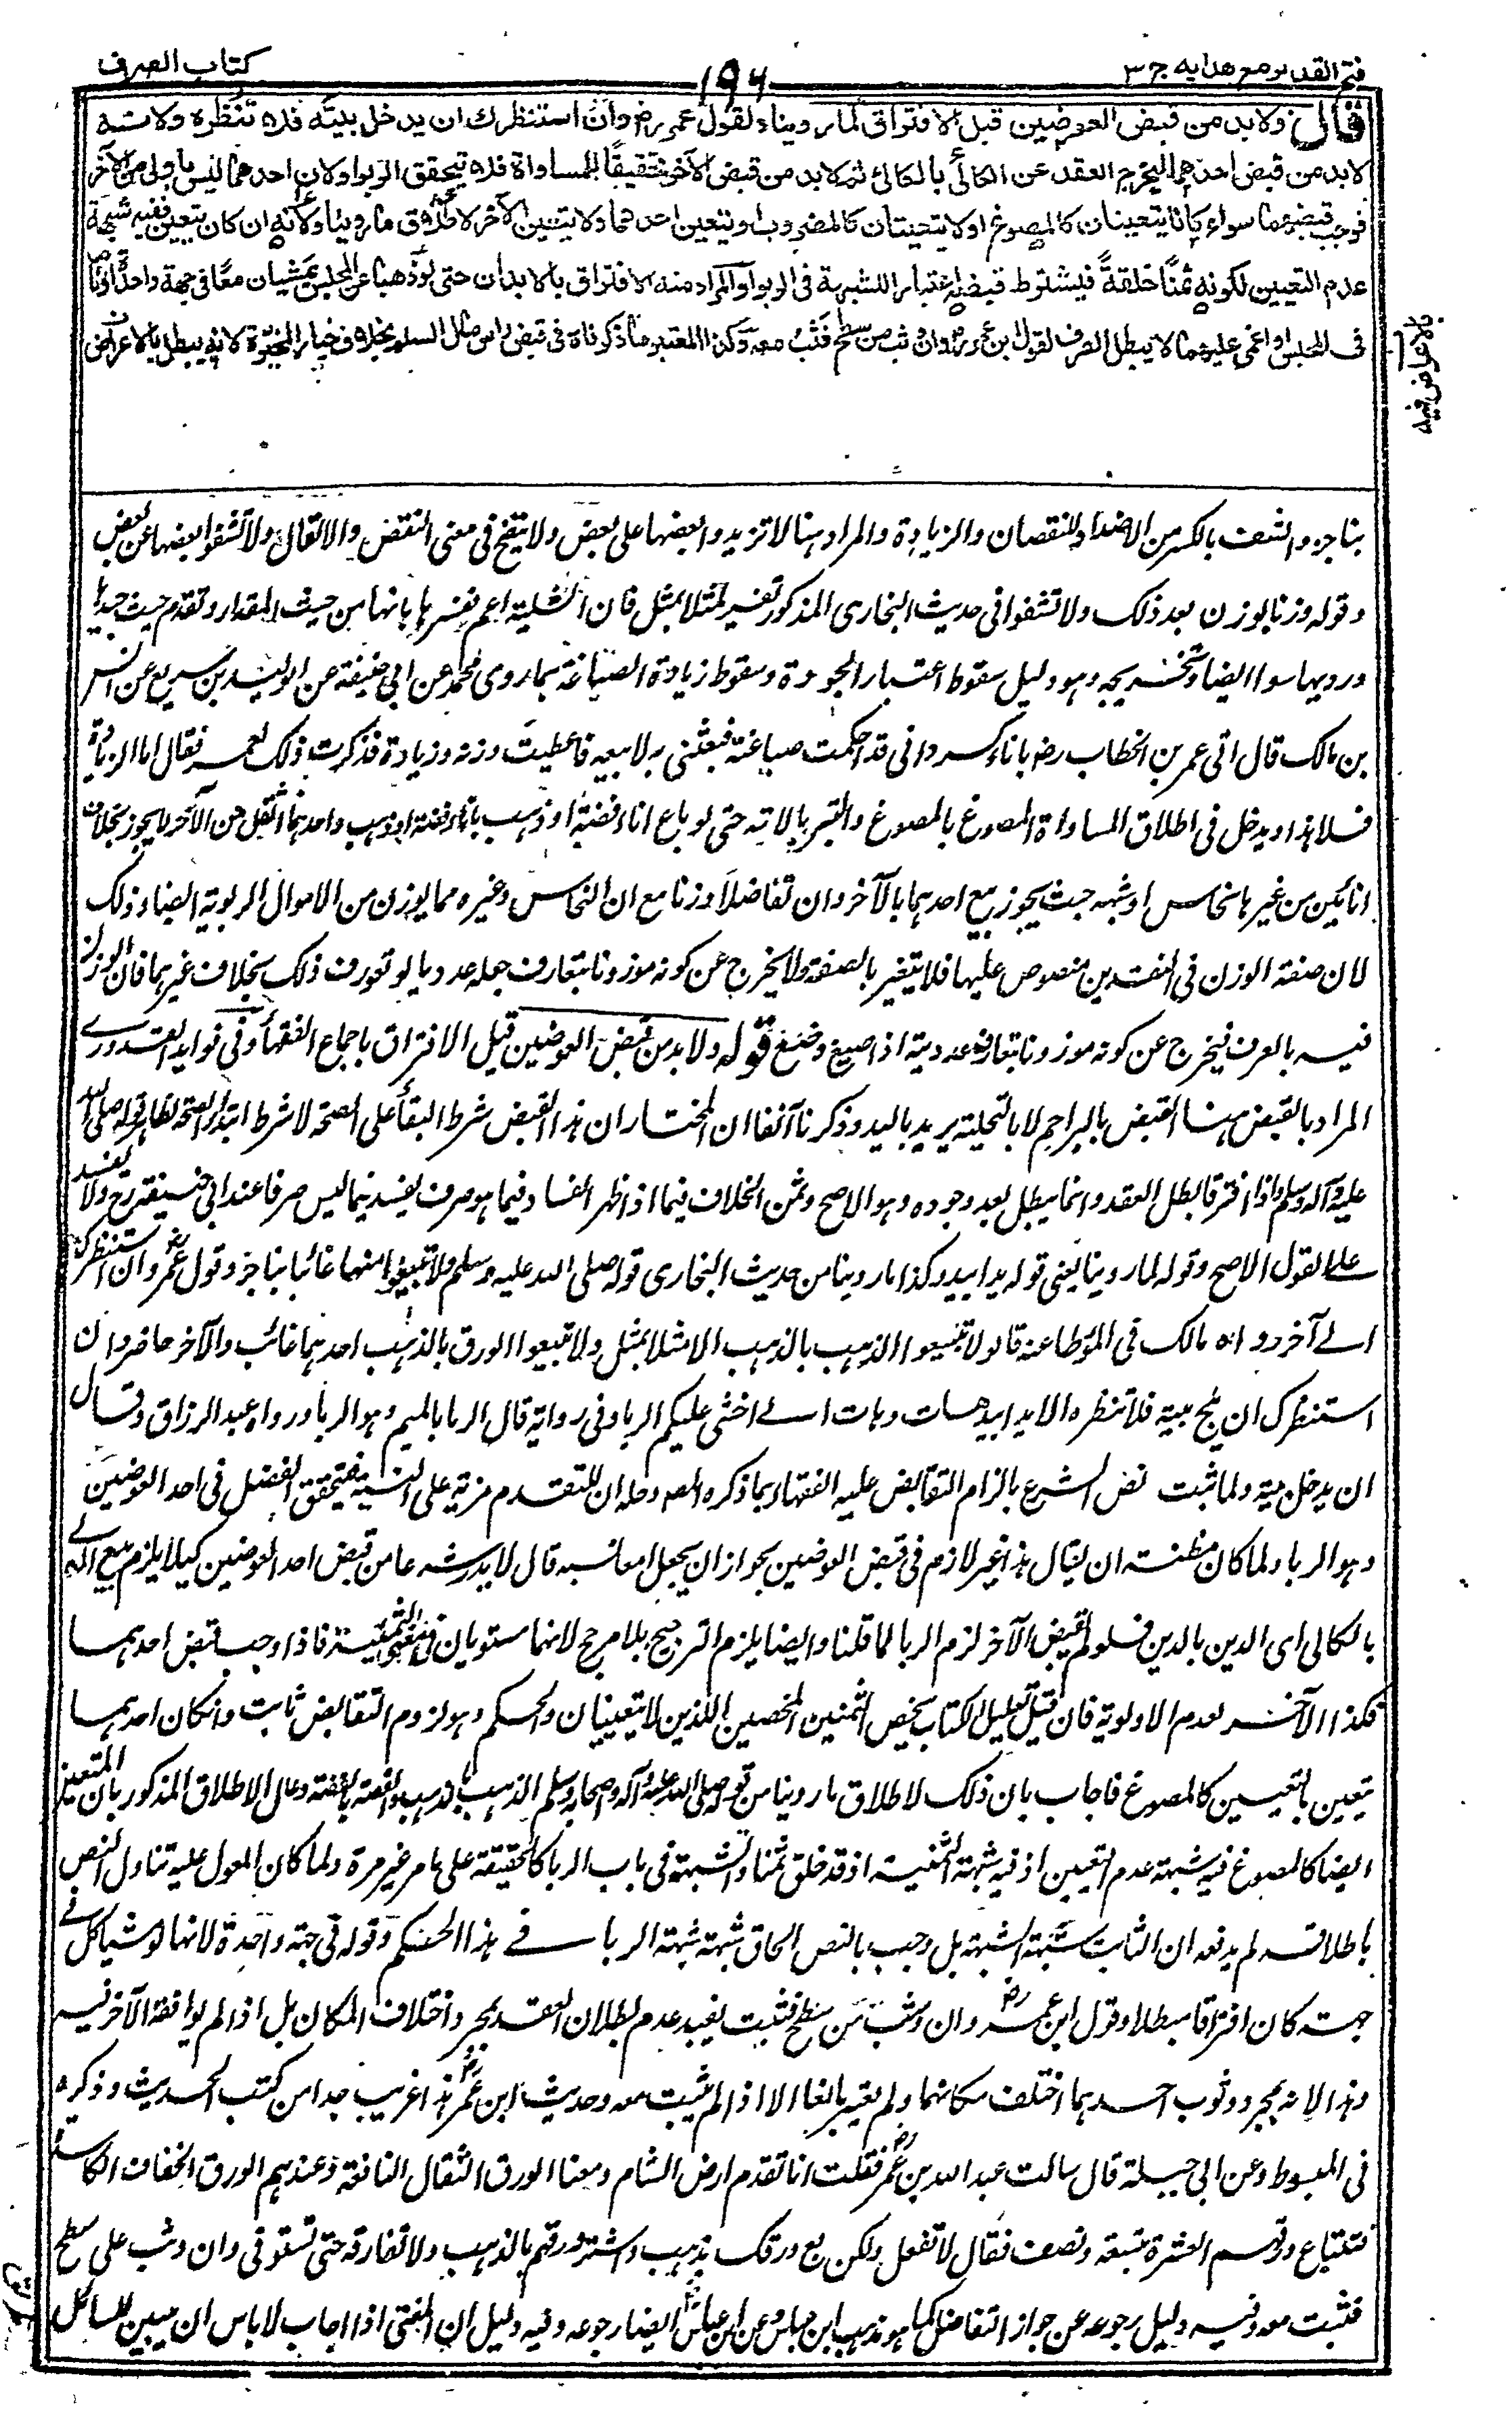 فتح القدير مع هدايه ج ٣
١٩٦
كتاب الصرف
قال ولابد من قبض العوضين قبل الافتراق لما روينا ولقول عمر رض وان استنظرك ان يدخل بيته فلا تنظره ولانه
لابد من قبض احدهما ليخرج العقد عن الكالئ بالكالئ ثم لابد من قبض الآخر تحقيقًا للمساواة فلا يتحقق الربوا ولان احدهما ليس باولى من الآخر
فوجب قبضهما سواء كانا يتعينان كالمصوغ او لا يتعينان كالمضروب او يتعين احدهما ولا يتعين الآخر لاطلاق ما روينا ولانه ان كان يتعين ففيه شبهة
عدم التعيين لكونه ثمنًا خلقةً فيشترط قبضه اعتبارا للشبهة في الربوا والمراد منه الافتراق بالابدان حتى لو ذهبا عن المجلس يمشيان معًا في جهة واحدة او ناما
في المجلس او اغمي عليهما لا يبطل الصرف لقول ابن عمر رض وان وثب من سطح فثب معه وكذا المعتبر ما ذكرناه في قبض راس مال السلم بخلاف خيار المخيرة لانه يبطل بالاعراض
بالاعراض فيه
بناجز والشف بالكسر من الاضداد للنقصان والزيادة والمراد ههنا لا تزيدوا بعضها على بعض ولا يتضح في معنى النقض والا لقال ولا تشفوا بعضها عن بعض
وقوله وزنا بوزن بعد ذلك ولا تشفوا في حديث البخاري المذكور تفسير لمثلا بمثل فان المثلية اعم ففسرها بانها من حيث المقدار وتقدم حيث جيدها
ورديها سواء ايضا وتخريجه وهو دليل سقوط اعتبار الجودة وسقوط زيادة الصياغة بما روى محمد عن ابي حنيفة عن الوليد بن سريع عن انس
بن مالك قال اتى عمر بن الخطاب رض باناء كسرواني قد احكمت صياغته فبعثني به لابيعه فاعطيت وزنه وزيادة فذكرت ذلك لعمر فقال اما الزيادة
فلا هذا ويدخل في اطلاق المساواة المصوغ بالمصوغ والتبر بالآنية حتى لو باع اناء فضة او ذهب باناء فضة او ذهب واحدهما اثقل من الآخر لا يجوز بخلاف
اناءين من غيرها نحاس او شبه حيث يجوز بيع احدهما بالآخر وان تفاضلا وزنا مع ان النحاس وغيره مما يوزن من الاموال الربوية ايضا وذلك
لان صفة الوزن في النقدين منصوص عليها فلا يتغير بالصنعة ولا يخرج عن كونه موزونا بتعارف جعله عدديا لو تعورف ذلك بخلاف غيرهما فان الوزن
فيه بالعرف فيخرج عن كونه موزونا بتعارف عدديته اذا صيغ وضنع قوله ولابد من قبض العوضين قبل الافتراق باجماع الفقهاء وفي فوايد القدوري
المراد بالقبض ههنا القبض بالبراجم لا بالتخلية يريد باليد وذكرنا آنفا ان المختار ان هذا القبض شرط البقاء على الصحة لا شرط ابتداء الصحة لظاهر قوله صلى الله
عليه وآله وسلم واذا افترقا بطل العقد وانما يبطل بعد وجوده وهو الاصح وثمرة الخلاف فيما اذا ظهر الفساد فيما هو صرف يفسد فيما ليس صرفا عند ابي حنيفة رح ولا يفسد
على القول الاصح وقوله لما روينا يعني قوله يدا بيد وكذا ما روينا من حديث البخاري قوله صلى الله عليه وسلم ولا تبيعوا منها غائبا بناجز وقول عمر رض وان استنظرك
الى آخره رواه مالك في الموطا عنه قال ولا تبيعوا الذهب بالذهب الا مثلا بمثل ولا تبيعوا الورق بالذهب احدهما غائب والآخر حاضر وان
استنظرك ان يلج بيته فلا تنظره الا يدا بيد هات وهات اني اخشى عليكم الربا وفي رواية قال الرما بالميم وهو الربا ورواه عبد الرزاق وقال
ان يدخل بيته ولما ثبت نص الشرع بالزام التقابض علله الفقهاء بما ذكره المصـ وحاصله ان للتقدم مزية على النسيئة فيتحقق الفضل في احد العوضين
وهو الربا ولما كان مظنة ان يقال هذا غير لازم في قبض العوضين بجواز ان يجعلا معا نسيه قال لابد شرعا من قبض احد العوضين كيلا يلزم بيع الكالى
بالكالى اى الدين بالدين فلو لم يقبض الآخر لزم الربا لما قلنا وايضا يلزم الترجيح بلا مرجح لانهما مستويان في معنى الثمنية فاذا وجب قبض احدهما
فكذا الآخر لعدم الاولوية فان قيل تعليل الكتاب يخص الثمنين المحضين اللذين لا يتعينان والحكم وهو لزوم التقابض ثابت وان كان احدهما
يتعين بالتعيين كالمصوغ فاجاب بان ذلك لاطلاق ما روينا من قوله صلى الله عليه وآله واصحابه وسلم الذهب بالذهب والفضة بالفضة وعلل الاطلاق المذكور بان المتعين
ايضا كالمصوغ فيه شبهة عدم التعيين اذ فيه شبهة الثمنية اذ قد خلق ثمنا والشبهة في باب الربا كالحقيقة على ما مر غير مرة ولما كان المعول عليه تناول النص
باطلاقه لم يدفعه ان الثابت شبهة الشبهة بل وجب بالنص الحاق شبهة شبهة الربا في هذا الحكم وقوله في جهة واحدة لانها لو مشيا كل في
جهة كان افتراقا مبطلا وقول ابن عمر رض وان وثب من سطح فثب يفيد عدم بطلان العقد بمجرد اختلاف المكان بل اذا لم يوافقه الآخر فيه
وهذا لانه بمجرد وثوب احدهما اختلف مكانهما ولم يعتبر مانعا الا اذا لم يثب معه وحديث ابن عمر رض هذا غريب جدا من كتب الحديث وذكره
في المبسوط وعن ابي جبلة قال سالت عبد الله بن عمر رض فقلت انا نقدم ارض الشام ومعنا الورق الثقال النافقة وعندهم الورق الخفاف الكاسدة
فنبتاع ورقهم العشرة بتسعة ونصف فقال لا تفعل ولكن بع ورقك بذهب واشتر ورقهم بالذهب ولا تفارقه حتى تستوفي وان وثب على سطح
فثب معه وفيه دليل رجوعه عن جواز التفاضل كما هو مذهب ابن عباس وعن ابن عباس رض ايضا رجوعه وفيه دليل ان المفتى اذا اجاب لا باس ان يبين للسائل